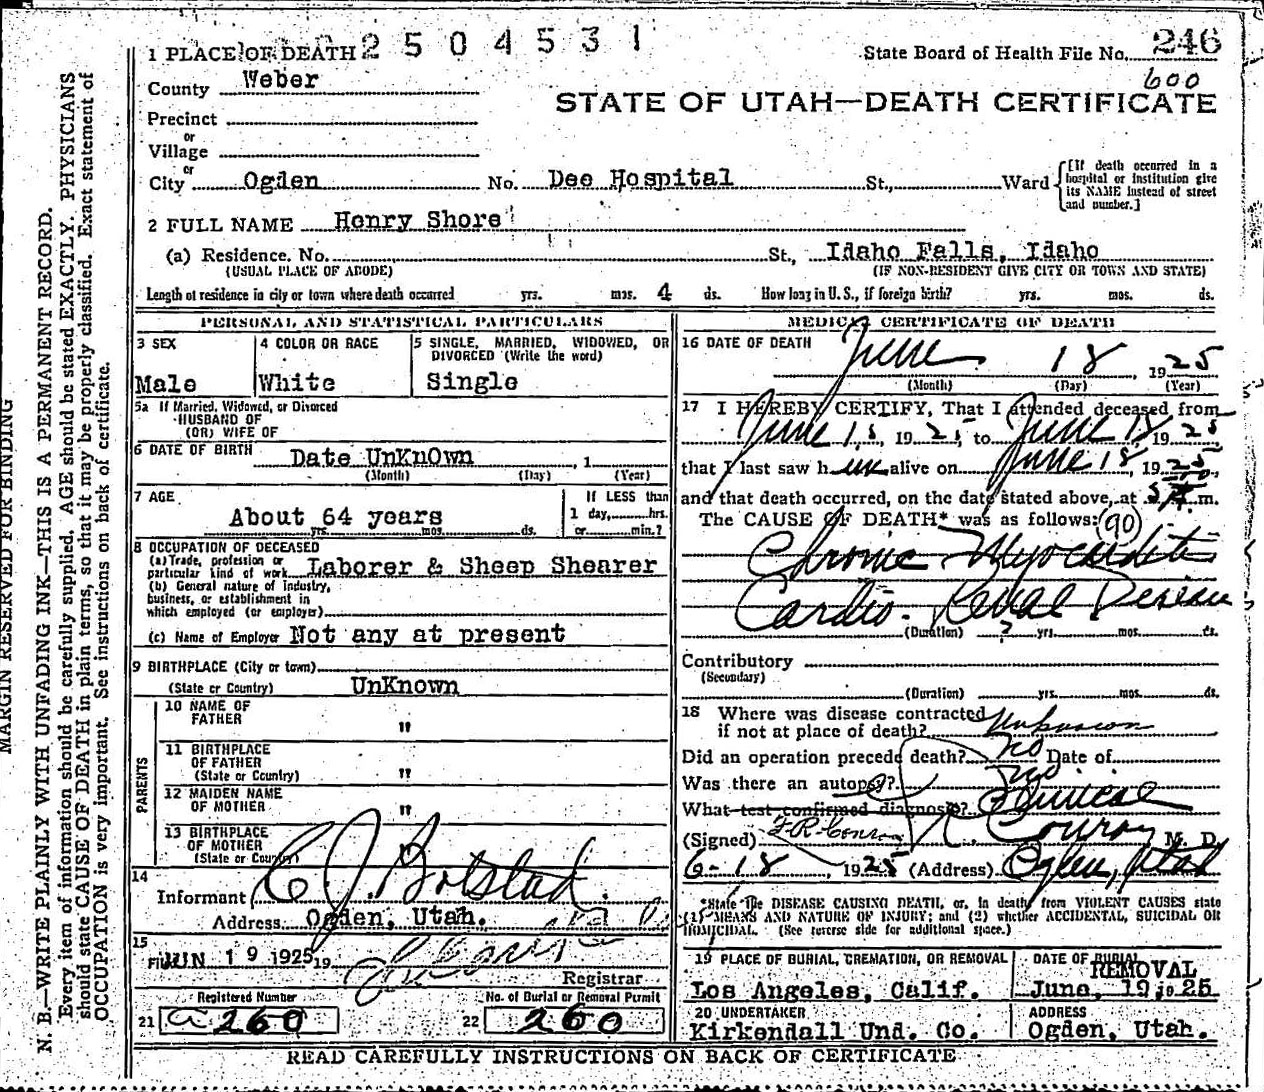 1 PLACE OF DEATH 2 5 0 4 5 3 1
State Board of Health File No. 246
600
County Weber
STATE OF UTAH—DEATH CERTIFICATE
Precinct
or
Village
or
City Ogden No. Dee Hospital St., Ward
[If death occurred in a
hospital or institution give
its NAME instead of street
and number.]
2 FULL NAME Henry Shore
(a) Residence. No. St., Idaho Falls, Idaho
(USUAL PLACE OF ABODE) (IF NON-RESIDENT GIVE CITY OR TOWN AND STATE)
Length of residence in city or town where death occurred yrs. mos. 4 ds. How long in U. S., if foreign birth? yrs. mos. ds.
PERSONAL AND STATISTICAL PARTICULARS
3 SEX
Male
4 COLOR OR RACE
White
5 SINGLE, MARRIED, WIDOWED, OR
DIVORCED (Write the word)
Single
5a If Married, Widowed, or Divorced
HUSBAND OF
(OR) WIFE OF
6 DATE OF BIRTH Date UnKnOwn , 1
(Month) (Day) (Year)
7 AGE
About 64 years
yrs. mos. ds.
If LESS than
1 day, hrs.
or min.?
8 OCCUPATION OF DECEASED
(a) Trade, profession or
particular kind of work Laborer & Sheep Shearer
(b) General nature of industry,
business, or establishment in
which employed (or employer)
(c) Name of Employer Not any at present
9 BIRTHPLACE (City or town)
(State or Country) UnKnown
PARENTS
10 NAME OF
FATHER "
11 BIRTHPLACE
OF FATHER
(State or Country) "
12 MAIDEN NAME
OF MOTHER "
13 BIRTHPLACE
OF MOTHER
(State or Country) "
14
Informant C J. Bolstad
Address Ogden, Utah.
15
Filed JUN 19 1925 19
Registrar
Registered Number
21 a 260
No. of Burial or Removal Permit
22 260
MEDICAL CERTIFICATE OF DEATH
16 DATE OF DEATH June 18, 1925
(Month) (Day) (Year)
17 I HEREBY CERTIFY, That I attended deceased from
June 18, 1925 to June 18 1925
that I last saw him alive on June 18, 1925,
and that death occurred, on the date stated above, at m.
The CAUSE OF DEATH* was as follows: 90
Chronic Myocarditis
Cardio-Renal Disease
(Duration) ? yrs. mos. ds.
Contributory
(Secondary)
(Duration) yrs. mos. ds.
18 Where was disease contracted
if not at place of death? Unknown
Did an operation precede death? no Date of
Was there an autopsy? no
What test confirmed diagnosis? Clinical
(Signed) F. R. Conroy Conroy M. D.
6-18, 1925 (Address) Ogden, Utah
*State the DISEASE CAUSING DEATH, or, in death from VIOLENT CAUSES state
(1) MEANS AND NATURE OF INJURY; and (2) whether ACCIDENTAL, SUICIDAL OR
HOMICIDAL. (See reverse side for additional space.)
19 PLACE OF BURIAL, CREMATION, OR REMOVAL
Los Angeles, Calif.
DATE OF BURIAL
REMOVAL
June, 19 19 25
20 UNDERTAKER
Kirkendall Und. Co.
ADDRESS
Ogden, Utah.
READ CAREFULLY INSTRUCTIONS ON BACK OF CERTIFICATE
MARGIN RESERVED FOR BINDING
N. B.—WRITE PLAINLY WITH UNFADING INK—THIS IS A PERMANENT RECORD.
Every item of information should be carefully supplied. AGE should be stated EXACTLY. PHYSICIANS
should state CAUSE OF DEATH in plain terms, so that it may be properly classified. Exact statement of
OCCUPATION is very important. See instructions on back of certificate.